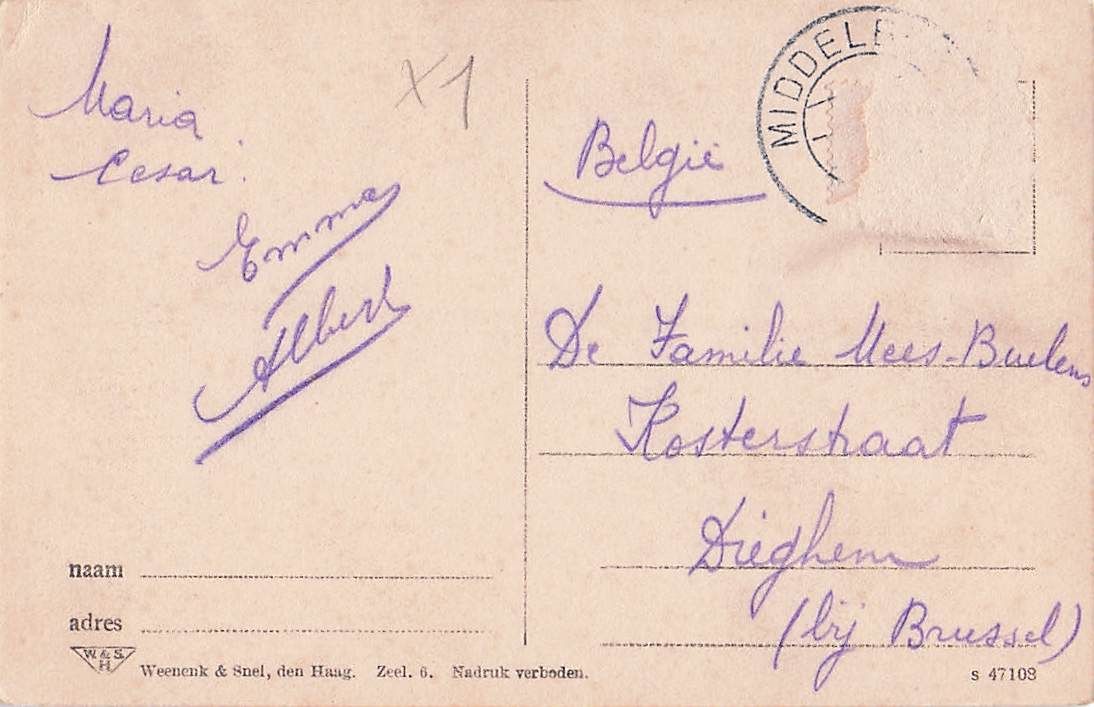 Maria
Cesar.
Emma
Albert
X1
MIDDELB
België
De Familie Mees-Buelens
Kosterstraat
Dieghem
(bij Brussel)
naam
adres
W. & S.
H
Weenenk & Snel, den Haag. Zeel. 6. Nadruk verboden.
s 47108